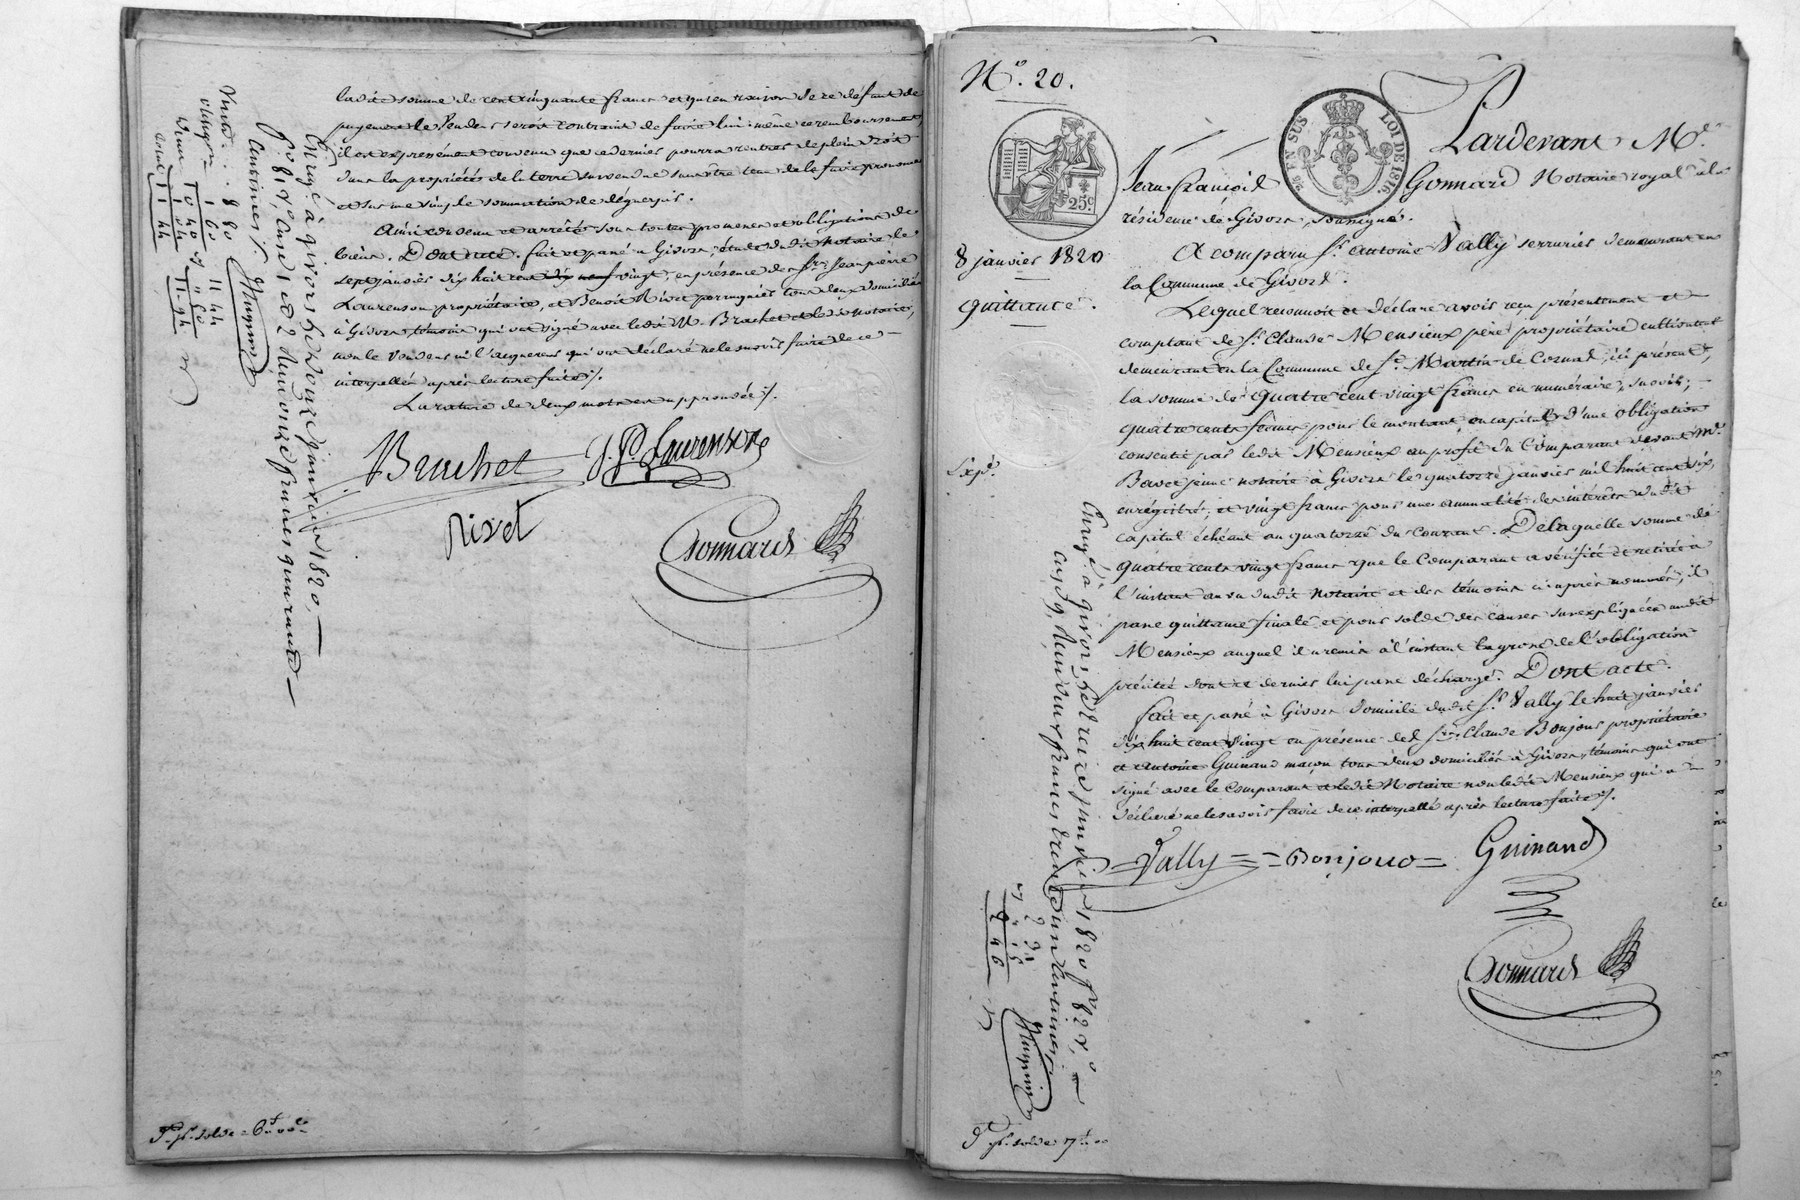 ladite somme de cent cinquante francs et qu'en raison de ce défaut de
payement le Vendeur seroit contraint de faire lui-même ce remboursement
il est expressément convenu que ce dernier pourra rentrer de plein droit
dans la propriété de la terre survendue sans être tenu de le faire prononcer
et sur une simple sommation de déguerpir.
Ainsi convenu et arrêté sous toutes promesses et obligations de
biens. Dont acte. fait et passé à Givors, étude dudit Notaire le
sept janvier dix huit cent dix neuf vingt, en présence des Srs. Jean pierre
Laurenson propriétaire, et Benoit Rivet perruquier tous deux domiciliés
à Givors témoins qui ont signé avec ledit Mr. Brachet et ledit Notaire,
non le Vendeur ni l'acquereur qui ont déclaré ne le savoir faire de ce
interpellés après lecture faite ./.
La rature de deux mots est approuvée ./.
Brachet J. P. Laurenson
Rivet
Gonnard
Enregé. à givors le douze janvier 1820,
fo. 81 Vo. Case 1 et 2 Reçu onze francs quarante
centimes ./.
Vente . . 8 80
1 60
10 40
1 04
11 44
11 44
11 94
Pr. solde 6
No. 20.
25c.
28 EN SUS
LOI DE 1816.
Pardevant Me.
Jean françois Gonnard Notaire royal à la
résidence de Givors, soussigné.
8 janvier 1820
A comparu Sr. antoine Vally serrurier demeurant en
la Commune de Givors.
quittance.
Lequel reconnoit et déclare avoir reçu présentement et
comptant de Sr. Claude Mensieux père propriétaire cultivateur
demeurant en la Commune de St. Martin de Cornas, ici présent,
la somme de quatre cent vingt francs en numéraire, savoir;
quatre cents francs pour le montant en capital d'une obligation
consentie par ledit Mensieux au profit du Comparant devant Me.
Expé.
Bavet jeune notaire à Givors le quatorze janvier mil huit cent six,
enregistré, et vingt francs pour une annualité des intérêts dudit
capital échéant au quatorze du courant. De laquelle somme de
quatre cents vingt francs que le Comparant a vérifiée et retirée à
l'instant au vu dudit Notaire et des témoins ci après nommés, il
passe quittance finale et pour solde des causes sus expliquées audit
Mensieux auquel il a remis à l'instant la grosse de l'obligation
précitée dont ce dernier lui passe décharge. Dont acte.
fait et passé à Givors domicile dudit Sr. Vally le huit janvier
dix huit cent vingt en présence des Srs. Claude Bonjour propriétaire
et antoine Guinand maçon tous deux domiciliés à Givors, témoins qui ont
signé avec le Comparant et ledit Notaire non ledit Mensieux qui a
déclaré ne le savoir faire de ce interpellé après lecture faite ./.
Vally Bonjour Guinand
Gonnard
Enregé. à givors le treize janvier 1820 fo. 82 Vo.
Case 9, Reçu deux francs trente un centimes
Pr. solde 7